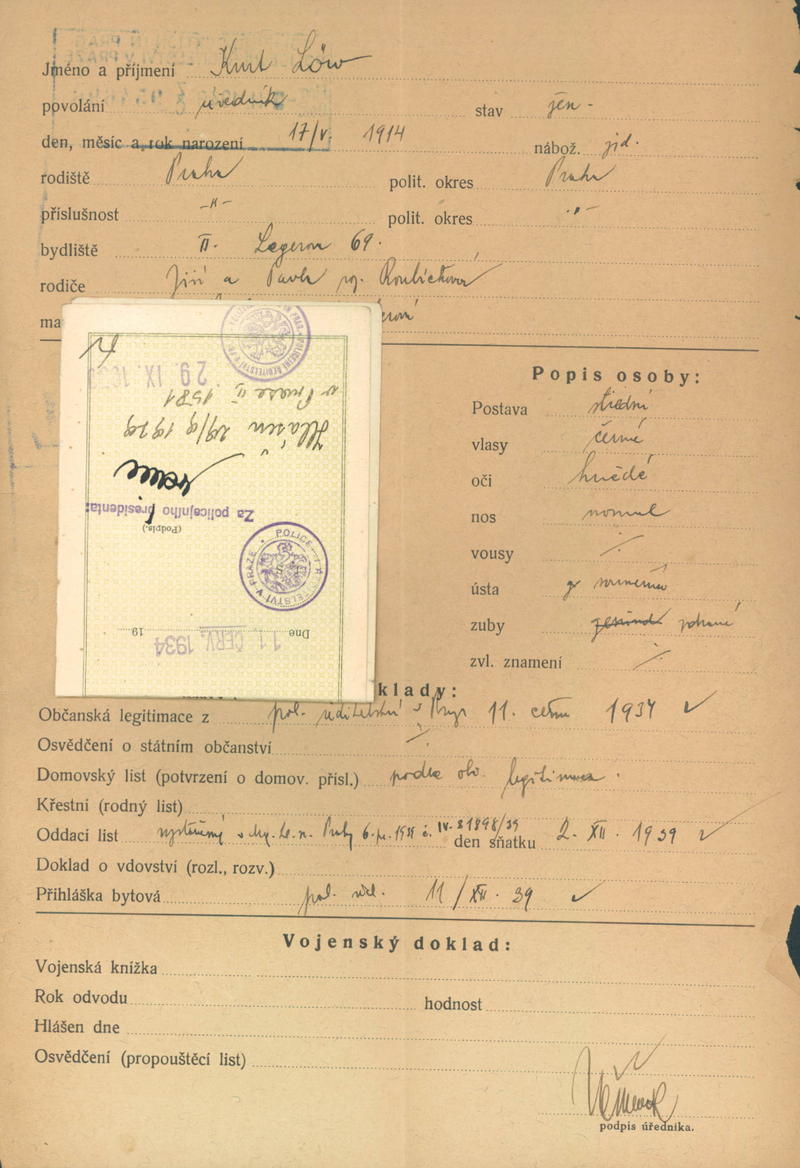 Jméno a příjmení Kurt Löw
povolání úředník stav žen -
den, měsíc a rok narození 17/V. 1914 nábož. žid.
rodiště Praha polit. okres Praha
příslušnost -"- polit. okres -"-
bydliště II. Legerova 69.
rodiče Jiří a Pavla roz. Roubíčková
ma
Popis osoby:
Postava střední
vlasy černé
oči hnědé
nos normal
vousy ⁒
ústa
zuby zdravé
zvl. znamení ⁒
klady:
Občanská legitimace z pol. ředitelství v Praze 11. června 1934 ✓
Osvědčení o státním občanství ⁒
Domovský list (potvrzení o domov. přísl.) podle obč. legitimace.
Křestní (rodný list)
Oddací list den sňatku 2. XII. 1939 ✓
Doklad o vdovství (rozl., rozv.)
Přihláška bytová pol. řed. 11/XII. 39 ✓
Vojenský doklad:
Vojenská knížka
Rok odvodu hodnost
Hlášen dne
Osvědčení (propouštěcí list)
podpis úředníka.
Dne 11. ČERV. 1934 19
POLICE V PRAZE
(Podpis.)
Za policejního presidenta:
Hlášen 29/9 1939
v Praze II 1581
29. IX.
14